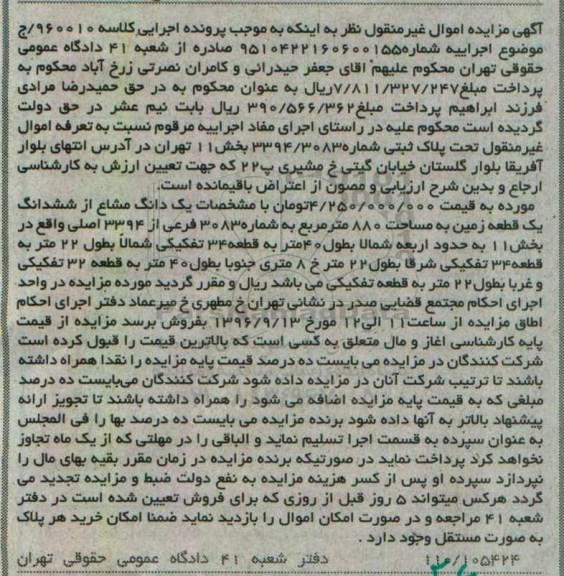 آگهی مزایده اموال غیرمنقول نظر به اینکه به موجب پرونده اجرایی کلاسه ۹۶۰۰۱۰/ج
موضوع اجراییه شماره۹۵۱۰۴۲۲۱۶۰۶۰۰۱۵۵ صادره از شعبه ۴۱ دادگاه عمومی
حقوقی تهران محکوم علیهم آقای جعفر حیدرانی و کامران نصرتی زرخ آباد محکوم به
پرداخت مبلغ۷/۸۱۱/۳۲۷/۲۴۷ریال به عنوان محکوم به در حق حمیدرضا مرادی
فرزند ابراهیم پرداخت مبلغ۳۹۰/۵۶۶/۳۶۲ ریال بابت نیم عشر در حق دولت
گردیده است محکوم علیه در راستای اجرای مفاد اجراییه مرقوم نسبت به تعرفه اموال
غیرمنقول تحت پلاک ثبتی شماره۳۳۹۴/۳۰۸۳ بخش۱۱ تهران در آدرس انتهای بلوار
آفریقا بلوار گلستان خیابان گیتی خ مشیری پ۲۲ که جهت تعیین ارزش به کارشناسی
ارجاع و بدین شرح ارزیابی و مصون از اعتراض باقیمانده است.
مورده به قیمت ۴/۲۵۰/۰۰۰/۰۰۰تومان با مشخصات یک دانگ مشاع از ششدانگ
یک قطعه زمین به مساحت ۸۸۰ مترمربع به شماره۳۰۸۳ فرعی از ۳۳۹۴ اصلی واقع در
بخش۱۱ به حدود اربعه شمالا بطول۴۰متر به قطعه۳۴ تفکیکی شمالا بطول ۲۲ متر به
قطعه۳۴ تفکیکی شرقا بطول۲۲ متر خ ۸ متری جنوبا بطول۴۰ متر به قطعه ۳۲ تفکیکی
و غربا بطول۲۲ متر به قطعه تفکیکی می باشد ریال و مقرر گردید مورده مزایده در واحد
اجرای احکام مجتمع قضایی صدر در نشانی تهران خ مطهری خ میرعماد دفتر اجرای احکام
اطاق مزایده از ساعت۱۱ الی۱۲ مورخ ۱۳۹۶/۹/۱۳ بفروش برسد مزایده از قیمت
پایه کارشناسی اغاز و مال متعلق به کسی است که بالاترین قیمت را قبول کرده است
شرکت کنندگان در مزایده می بایست ده درصد قیمت پایه مزایده را نقدا همراه داشته
باشند تا ترتیب شرکت آنان در مزایده داده شود شرکت کنندگان می‌بایست ده درصد
مبلغی که به قیمت پایه مزایده اضافه می شود را همراه داشته باشند تا تجویز ارائه
پیشنهاد بالاتر به آنها داده شود برنده مزایده می بایست ده درصد بها را فی المجلس
به عنوان سپرده به قسمت اجرا تسلیم نماید و الباقی را در مهلتی که از یک ماه تجاوز
نخواهد کرد پرداخت نماید در صورتیکه برنده مزایده در زمان مقرر بقیه بهای مال را
نپردازد سپرده او پس از کسر هزینه مزایده به نفع دولت ضبط و مزایده تجدید می
گردد هرکس میتواند ۵ روز قبل از روزی که برای فروش تعیین شده است در دفتر
شعبه ۴۱ مراجعه و در صورت امکان اموال را بازدید نماید ضمنا امکان خرید هر پلاک
به صورت مستقل وجود دارد .
۱۱۰/۱۰۵۴۲۴ دفتر شعبه ۴۱ دادگاه عمومی حقوقی تهران